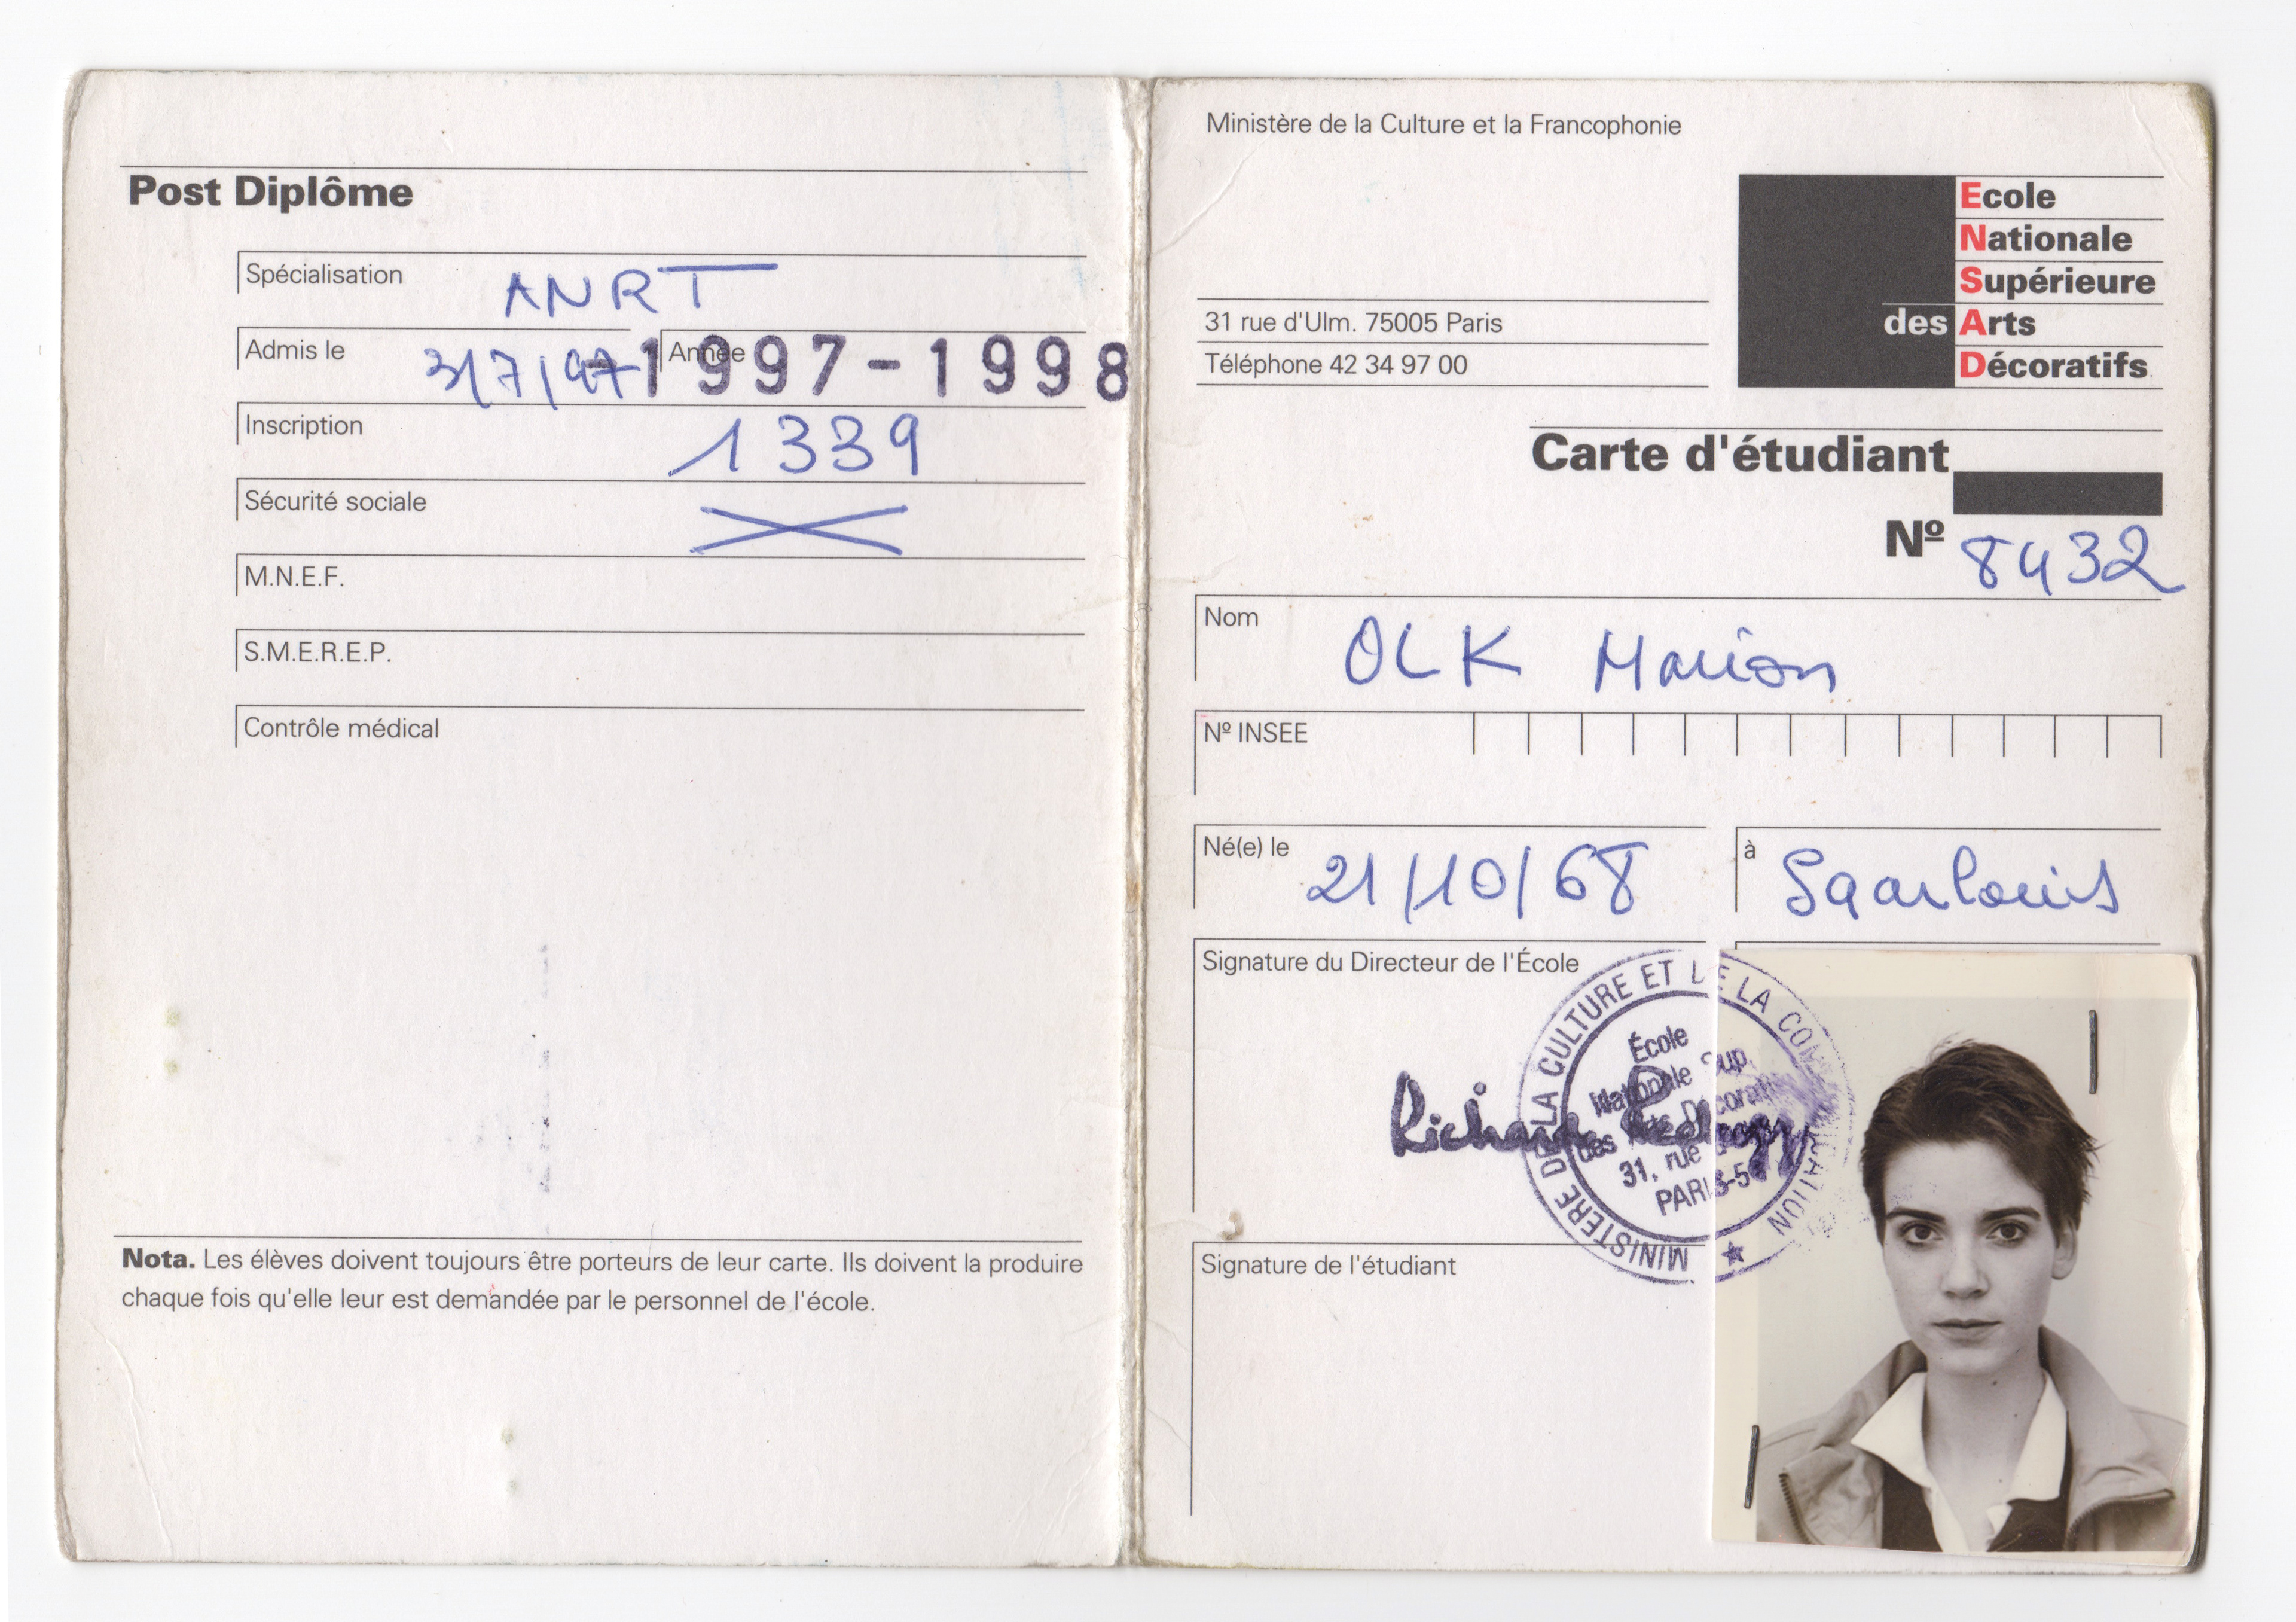 Post Diplôme
Spécialisation ANRT
Admis le 3/7/97
Année 1997-1998
Inscription 1339
Sécurité sociale
M.N.E.F.
S.M.E.R.E.P.
Contrôle médical
Nota. Les élèves doivent toujours être porteurs de leur carte. Ils doivent la produire
chaque fois qu'elle leur est demandée par le personnel de l'école.
Ministère de la Culture et la Francophonie
Ecole
Nationale
Supérieure
des Arts
Décoratifs
31 rue d'Ulm. 75005 Paris
Téléphone 42 34 97 00
Carte d'étudiant
Nº 8432
Nom OLK Marion
Nº INSEE
Né(e) le 21/10/68
à Saarlouis
Signature du Directeur de l'École
MINISTÈRE DE LA CULTURE ET DE LA COMMUNICATION
École
Nationale Sup.
des Arts Décoratifs
31, rue
PARIS-5
Richard
Signature de l'étudiant